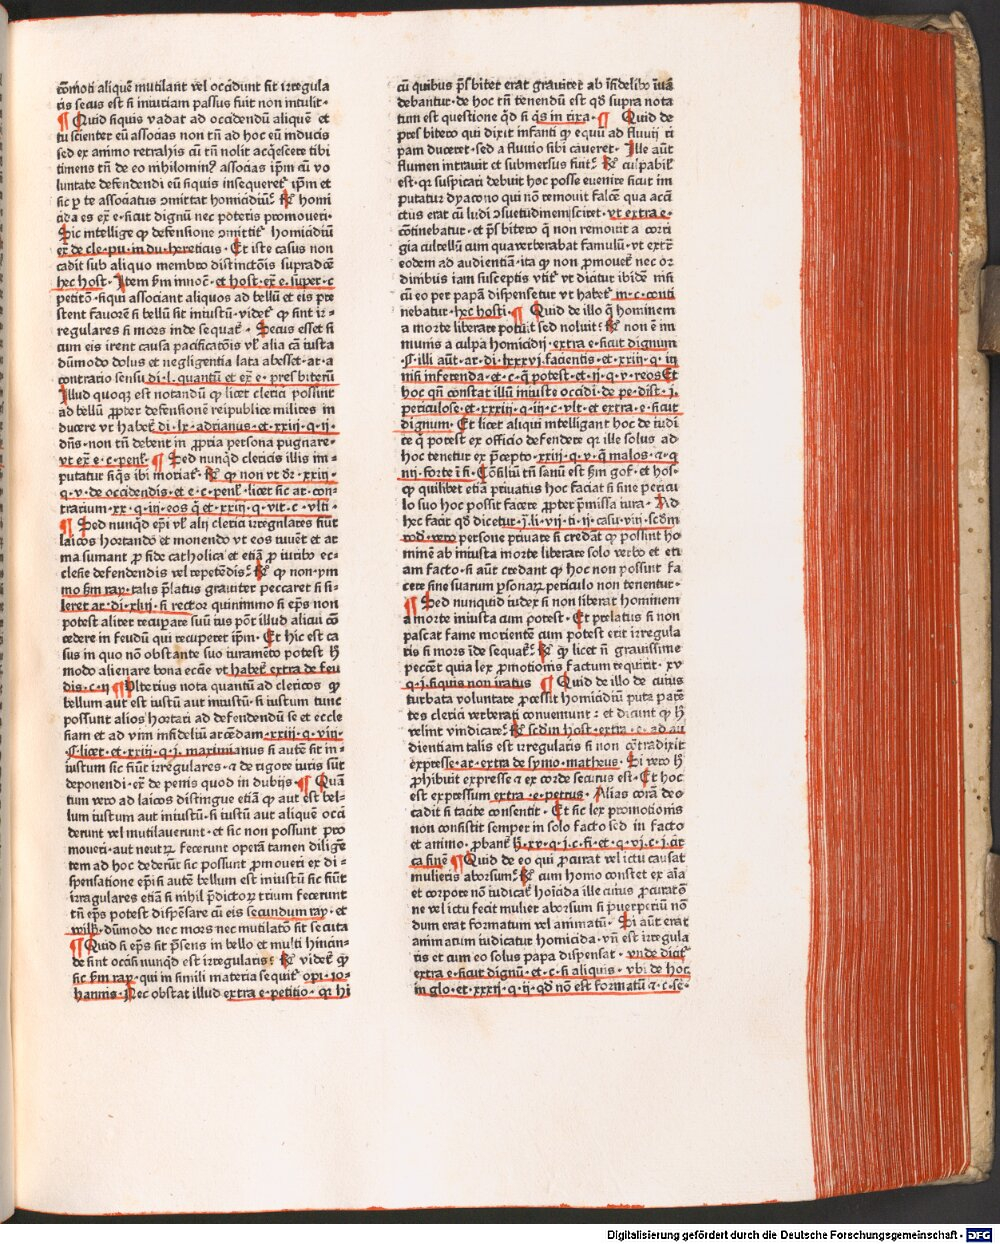 cōmoti aliquē mutilant vel occidunt fit irregula
ris secus est si iniuriam passus fuit non intulit·
¶ Quid siquis vadat ad occidendū aliquē et
tu scienter eū associas non tn̄ ad hoc eū inducis
sed ex animo retrahis cū tn̄ nolit acq̄escere tibi
timens tn̄ de eo nihilomin⁹ associas ip̄m cū vo
luntate defendendi eū siquis insequeret᷑ ip̄m et
sic p te associatus ꝯmittat homicidiū: R᷑ homi
cida es ex̄ e·sicut dignū nec poteris promoueri·
Sic intellige ꝙ defensione ꝯmittit᷑ homicidiū
ex de cle·pu·in du·hereticus·Et iste casus non
cadit sub aliquo membro distinctōis supradcē
hec host·Item s̄m innoc̄·et host·ex̄ e·super·c
petitō·siqui associant aliquos ad bellū et eis pre
stent fauorē si bellū sit iniustū·videt᷑ ꝙ sint ir-
regulares si mors inde sequat᷑·Secus esset si
cum eis irent causa pacificatōis vl᷑ alia cā iusta
dūmodo dolus et negligentia lata abesset·ar·a
contrario sensu di·l·quantū et ex̄ e·presbiterū
Illud quoqꝫ est notandū ꝙ licet clerici possint
ad bellū ꝓpter defensionē reipublice milites in
ducere vt habet᷑ di·lx·adrianus·et xxiij·q·ij·
dn̄s·non tn̄ debent in ꝓpria persona pugnare·
vt ex̄ e·c·penl᷑·¶ Sed nunqd̄ clericis illis im-
putatur siq̄s ibi moriat᷑·R᷑ ꝙ non vt dr̄·xxiij·
q·v·de occidendis·et e·c·penl᷑·licet sic ar·con-
trarium·xx·q·iij·eos q̄ et·xxiij·q·vlt·c·vlti·
¶ Sed nunqd̄ ep̄i vl᷑ alij clerici irregulares fiūt
laicos hortando et monendo vt eos iuuēt et ar
ma sumant ꝓ fide catholica et etiā ꝓ iuribꝰ ec-
clesie defendendis vel repetendis: R᷑ ꝙ non·ym
mo s̄m ray·talis p̄latus grauiter peccaret si si-
leret ar·di·xliij·si rector quinimmo si ep̄s non
potest aliter recuꝑare suū ius pōt illud alicui cō
cedere in feudū qui recuperet ip̄m·Et hic est ca
sus in quo nō obstante suo iuramēto potest h̄
modo alienare bona eccīe vt habet᷑ extra de feu
dis·c·ij ¶ Ulterius nota quantū ad clericos ꝙ
bellum aut est iustū aut iniustū·si iustum tunc
possunt alios hortari ad defendendū se et eccle
siam et ad vim infideliū arcēdam·xxiij·q·viij·
ꝑ licet·et·xxiij·q·j·maximianus si autē sit in-
iustum sic fiūnt irregulares·⁊ de rigore iuris sūt
deponendi·ex̄ de penis quod in dubijs·¶ Quā
tum vero ad laicos distingue etiā ꝙ aut est bel-
lum iustum aut iniustū·si iustū aut aliquē occi
derunt vel mutilauerunt·et sic non possunt pro
moueri·aut neutrꝝ fecerunt operā tamen diligē
tem ad hoc dederūt sic possunt ꝓmoueri ex di-
spensatione ep̄i si autē bellum est iniustū sic fiūt
irragulares etiā si nihil p̄dictoꝝ trium fecerunt
tn̄ ep̄s potest dispēsare cū eis secundum ray·et
wilh̄·dūmodo nec mors nec mutilatō sit secuta
¶ Quid si ep̄s sit p̄sens in bello et multi hincin-
de sint occisi nunqd̄ est irregularis: R᷑ videt᷑ ꝙ
sic s̄m ray·qui in simili materia sequit᷑ opi·io-
hannis·Nec obstat illud extra e·petitio·qꝛ hi
cū quibus p̄sbiter erat grauiter ab īfidelibꝰ īua
debantur·de hoc tn̄ tenendū est qd̓ supra nota
tum est questione qd̓ si q̄s in rixa·¶ Quid de
presbitero qui dixit infanti ꝙ equū ad fluuij ri
pam duceret·sed a fluuio sibi caueret·Ille aūt
flumen intrauit et submersus fuit: R᷑ culpabil᷑
est·qꝛ suspicari debuit hoc posse euenire sicut im
putatur dyacono qui nō remouit falcē qua acci
ctus erat cū ludi ꝯsuetudinem sciret·vt extra e·
cōtinebatur·et p̄sbitero q̄ non remouit a corri
gia cultellū cum qua verberabat famulū·vt extrē
eodem ad audientiam·ita ꝙ non ꝓmouet᷑ nec or
dinibus iam susceptis vtit᷑ vt dicitur ibidē nisi
cū eo per papā dispensetur vt habet᷑ m·c·conti
nebatur·hec hosti·¶ Quid de illo q̄ hominem
a morte liberare potuit sed noluit: R᷑ non ē im
munis a culpa homicidij·extra e·sicut dignum
ꝑ illi aūt·ar·di·lxxxvj·facientis·et·xxiij·q·iij
nisi inferenda·et·c·q̄ potest·et·ij·q·v·reos Et
hoc qn̄ constat illū iniuste occidi·de pe·dist·j·
periculose·et·xxxiij·q·iij·c·vlt·et extra·e·sicut
dignum·Et licet aliqui intelligant hoc de iudi
ce q̄ potest ex officio defendere qꝛ ille solus ad
hoc tenetur ex p̄cepto·xxiij·q·v·q̄ malos·⁊·q
iiij·forte ī fi·Cōsiliū tn̄ sanū est s̄m gof·et hos·
ꝙ quilibet etiā priuatus hoc faciat si sine pericu
lo suo hoc possit facere ꝓpter p̄missa iura·Ad
hec facit qd̓ dicetur·j·li·vij·ti·ij·casu·viij·scd̄m
rod̄·vero persone priuate si credāt ꝙ possint ho
minē ab iniusta morte liberare solo verbo et eti
am facto·si aūt credant ꝙ hoc non possint fa
cere sine suarum ꝑsonaꝝ periculo non tenentur·
¶ Sed nunquid iudex si non liberat hominem
a morte iniusta cum potest·Et prelatus si non
pascat fame morientē cum potest erit irregula
ris si mors īde sequat᷑: R᷑ ꝙ licet n̄ grauissime
peccēt quia lex ꝓmotionis factum requirit·xv
q·j·si quis non iratus ¶ Quid de illo de cuius
turbata voluntate ꝓcessit homicidiū puta parē
tes clerici verberati conueniunt: et dicunt ꝙ h̄
velint vindicare: R᷑ scd̄m host·extra·e·ad au
dientiam talis est irregularis si non cōtradixit
expresse·ar·extra de symo·matheus·Si vero h̄
ꝓhibuit expresse ⁊ ex corde securus est·Et hoc
est expressum extra·e·petrus·Alias corā deo
cadit si tacite consentit·Et sic lex promotionis
non consistit semper in solo facto sed in facto
et animo·ꝓbant᷑ h̄·xv·q·j·c·fi·et·q·vj·c·j·cir
ca finē ¶ Quid de eo qui ꝓcurat vel ictu causat
mulieris aborsum: R᷑ cum homo constet ex aīa
et corpore nō iudicat᷑ hoīcida ille cuius ꝓcuratō
ne vel ictu fecit mulier aborsum si puerperiū nō
dum erat formatum vel animatū·Si aūt erat
animatum iudicatur homicida·vn̄ est irregula
ris et cum eo solus papa dispensat·vnde dicit᷑
extra e·sicut dignū·et·c·si aliquis·vbi de hoc
in glo·et·xxxij·q·ij·qd̓ nō est formatū ⁊·c·se·
Digitalisierung gefördert durch die Deutsche Forschungsgemeinschaft - DFG